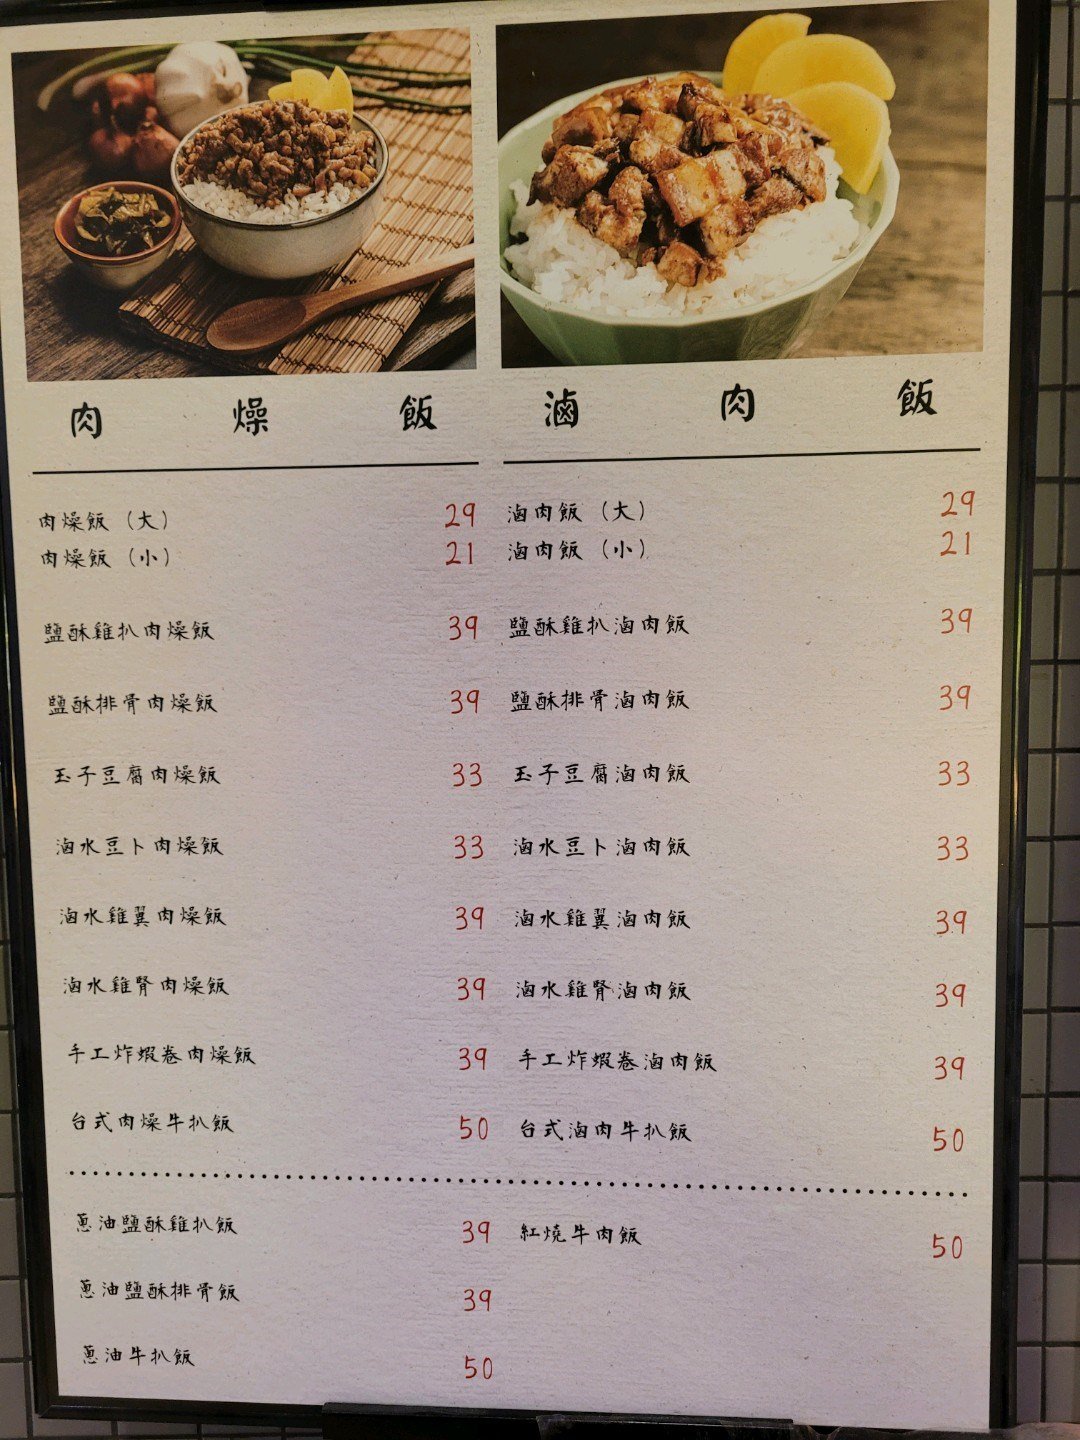 肉燥飯
肉燥飯（大） 29
肉燥飯（小） 21
鹽酥雞扒肉燥飯 39
鹽酥排骨肉燥飯 39
玉子豆腐肉燥飯 33
滷水豆卜肉燥飯 33
滷水雞翼肉燥飯 39
滷水雞腎肉燥飯 39
手工炸蝦卷肉燥飯 39
台式肉燥牛扒飯 50
滷肉飯
滷肉飯（大） 29
滷肉飯（小） 21
鹽酥雞扒滷肉飯 39
鹽酥排骨滷肉飯 39
玉子豆腐滷肉飯 33
滷水豆卜滷肉飯 33
滷水雞翼滷肉飯 39
滷水雞腎滷肉飯 39
手工炸蝦卷滷肉飯 39
台式滷肉牛扒飯 50
蔥油鹽酥雞扒飯 39
蔥油鹽酥排骨飯 39
蔥油牛扒飯 50
紅燒牛肉飯 50